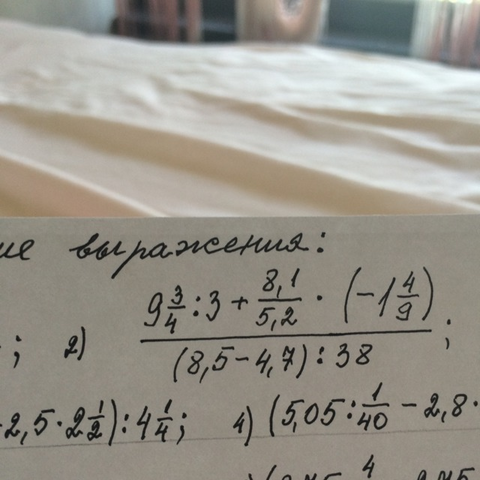 ие выражения:
; 2) (9 3/4 : 3 + 8,1/5,2 · (-1 4/9)) / ((8,5 - 4,7) : 38) ;
2,5 · 2 1/2) : 4 1/4; 4) (5,05 : 1/40 - 2,8 ·